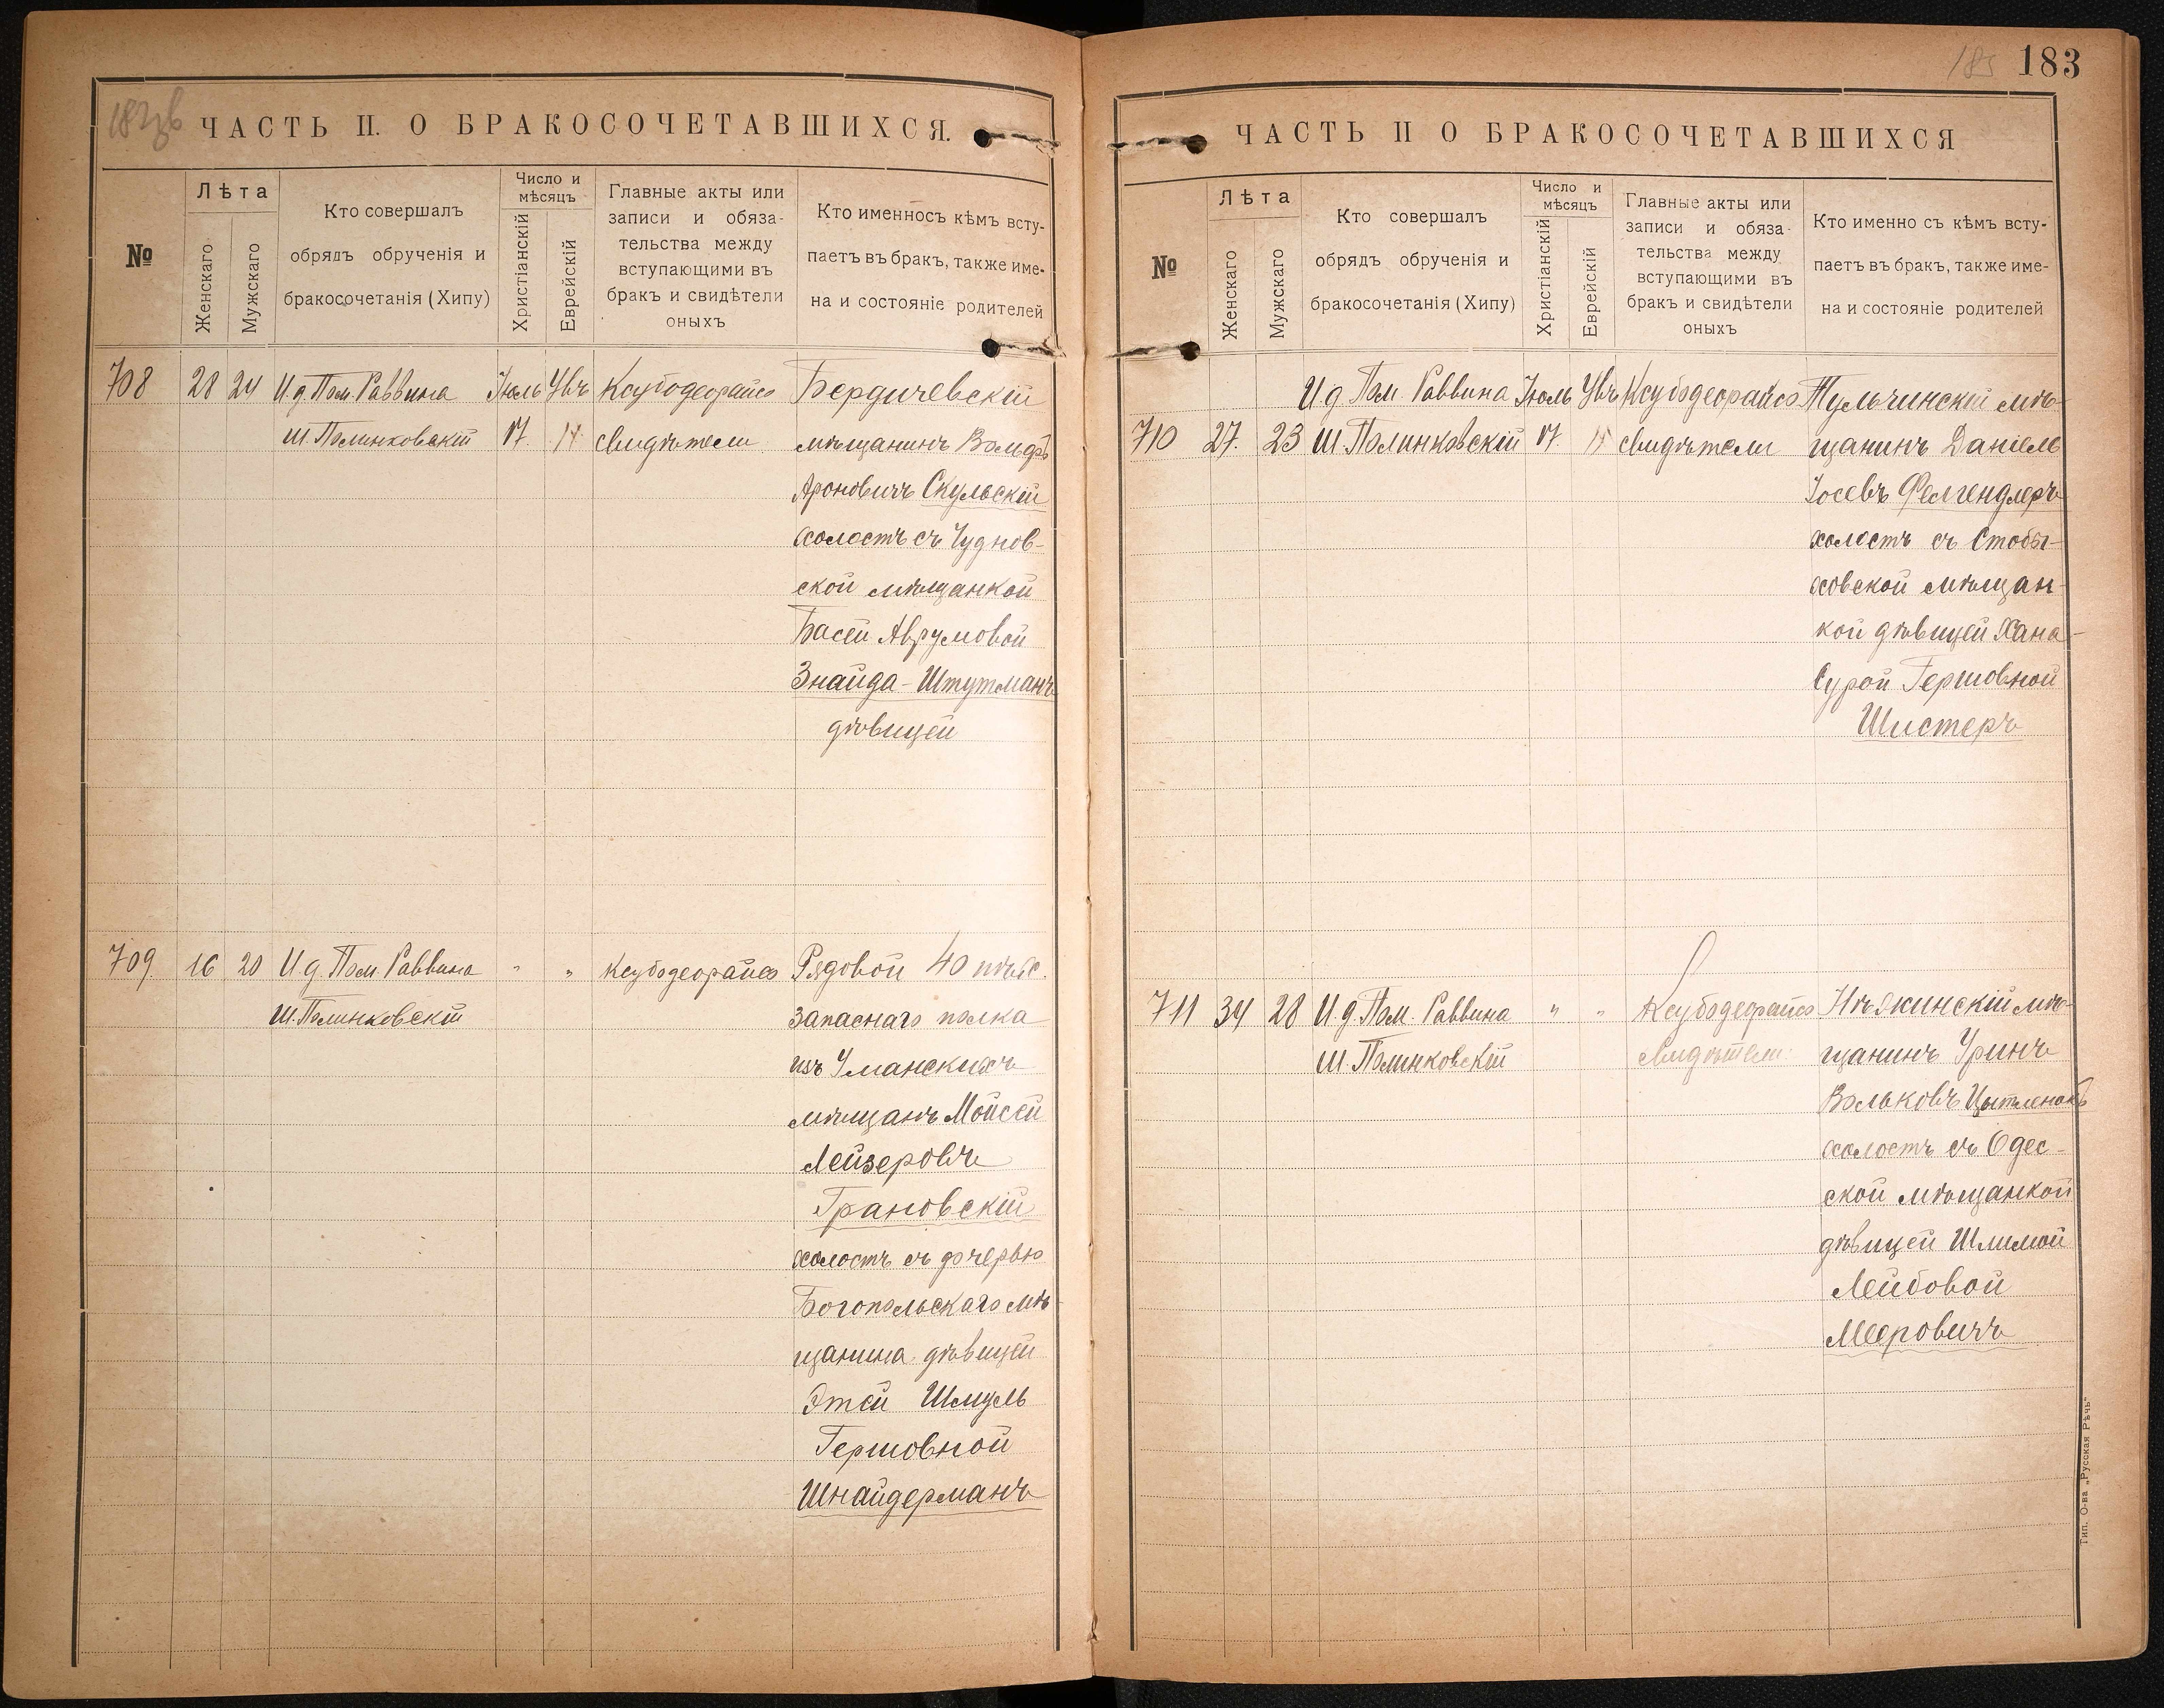 ЧАСТЬ II. О БРАКОСОЧЕТАВШИХСЯ.
№
Лѣта
Женскаго
Мужскаго
Кто совершалъ
обрядъ обрученія и
бракосочетанія (Хипу)
Число и
мѣсяцъ
Христіанскій
Еврейскій
Главные акты или
записи и обяза-
тельства между
вступающими въ
бракъ и свидѣтели
оныхъ
Кто именносъ кѣмъ всту-
паетъ въ бракъ, также име-
на и состояніе родителей
708 28 24 И д Пом. Раввина Іюль Убъ Ксубодеорайсо Бердичевскій
Ш. Полинковскій 17. свидѣтели мѣщанинъ Вольфъ
Ароновичъ Скульскій
холостъ съ Чуднов-
ской мѣщанкой
Басей Аврумовой
Знайда-Штутманъ
дѣвицей
709 16 20 И д. Пом. Раввина " " Ксубодеорайсо Рядовой 40 пѣх.
Ш. Полинковскій запаснаго полка
изъ Уманскихъ
мѣщанъ Мойсей
Лейзеровъ
Грановскій
холостъ съ дочерью
Богопольскаго мѣ-
щанина дѣвицей
Этей Шмуль
Гершовной
Шнайдерманъ
183
ЧАСТЬ II О БРАКОСОЧЕТАВШИХСЯ
№
Лѣта
Женскаго
Мужскаго
Кто совершалъ
обрядъ обрученія и
бракосочетанія (Хипу)
Число и
мѣсяцъ
Христіанскій
Еврейскій
Главные акты или
записи и обяза-
тельства между
вступающими въ
бракъ и свидѣтели
оныхъ
Кто именно съ кѣмъ всту-
паетъ въ бракъ, также име-
на и состояніе родителей
И д Пом. Раввина Іюль Убъ Ксубодеорайсо Тульчинскій мѣ-
710 27. 23 Ш. Полинковскій 17. свидѣтели щанинъ Даніель
Іосевъ Фелгендлеръ
холостъ съ Стобы-
ховской мѣщан-
кой дѣвицей Хана-
Сурой Гершовной
Шистеръ
711 34 28 И. д Пом Раввина " " Ксубодеорайсо Нѣжинскій мѣ-
Ш. Полинковскій свидѣтели: щанинъ Уринъ
Вольковъ
холостъ съ Одес-
ской мѣщанкой
дѣвицей Шлимой
Лейбовой
Мееровичъ
Тип. О-ва „Русская Рѣчь"